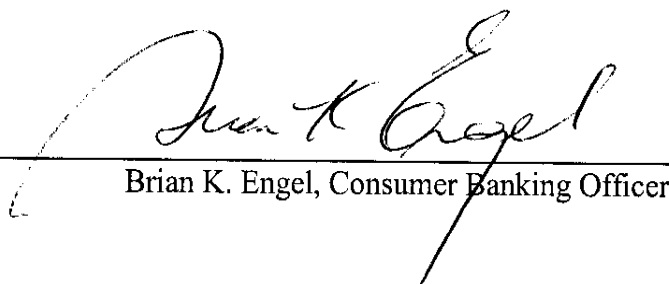 Brian K Engel
Brian K. Engel, Consumer Banking Officer